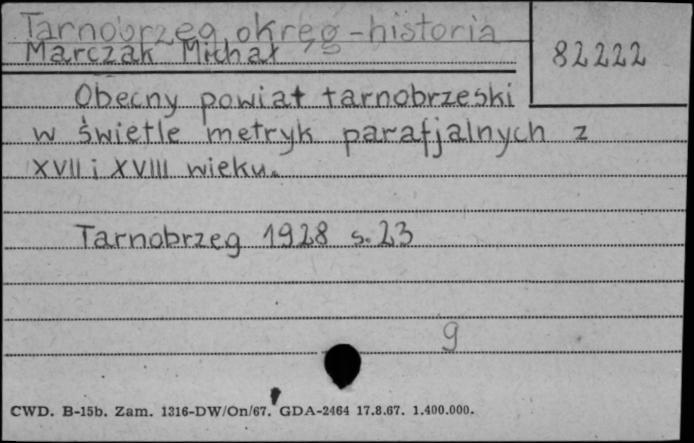 Tarnobrzeg, okręg - historia
Marczak Michał
82222
Obecny powiat tarnobrzeski
w świetle metryk parafjalnych z
XVII i XVIII wieku.
Tarnobrzeg 1928 s. 23
g
CWD. B-15b. Zam. 1316-DW/On/67. GDA-2464 17.8.67. 1.400.000.